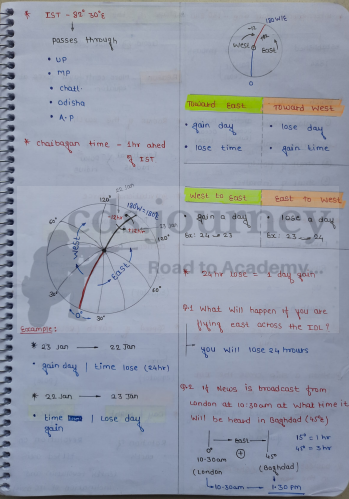 * IST - 82° 30'E
passes through
• UP
• MP
• Chatt.
• Odisha
• A.P
* Chaibagan time - 1hr ahed of IST
22 Jan
180°W=180°E
60°
120°
120°
West
East
30°
60°
0°
30°
Example:
* 23 Jan → 22 Jan
• gain day | time lose (24hr)
* 22 Jan → 23 Jan
• time gain | Lose day
180°W/E
West
East
0
Toward East
Toward West
• gain day
• lose day
• lose time
• gain time
West to East
East to West
gain a day
Lose a day
Ex: 24 → 23
Ex: 23 → 24
Road to Academy...
* 24hr lose = 1 day gain
Q.1 What will happen if you are flying east across the IDL?
you will lose 24 hours
Q.2 If News is broadcast from London at 10:30am at what time it will be heard in Baghdad (45°E)
East
+
0°
45°
15° = 1 hr
45° = 3 hr
10:30am
(London)
(Baghdad)
10:30am → 1:30 pm